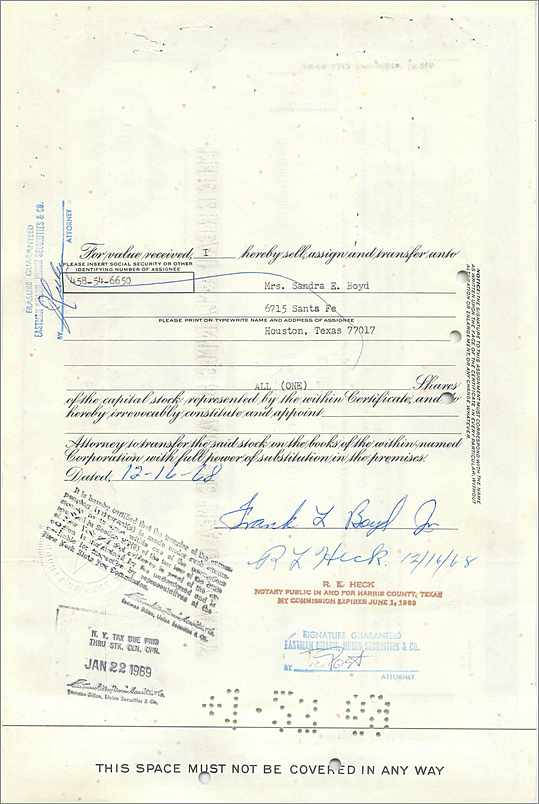 For value received, I hereby sell, assign and transfer unto
PLEASE INSERT SOCIAL SECURITY OR OTHER
IDENTIFYING NUMBER OF ASSIGNEE
458-54-6650
Mrs. Sandra E. Boyd
6715 Santa Fe
PLEASE PRINT OR TYPEWRITE NAME AND ADDRESS OF ASSIGNEE
Houston, Texas 77017
ALL (ONE) Shares
of the capital stock represented by the within Certificate, and do
hereby irrevocably constitute and appoint
Attorney to transfer the said stock on the books of the within named
Corporation with full power of substitution in the premises.
Dated, 12-16-68
Frank L Boyd Jr
R L Heck 12/16/68
R. E. HECK
NOTARY PUBLIC IN AND FOR HARRIS COUNTY, TEXAS
MY COMMISSION EXPIRES JUNE 1, 1969
SIGNATURE GUARANTEED
EASTMAN DILLON, UNION SECURITIES & CO.
BY
ATTORNEY
ERASURE GUARANTEED
EASTMAN DILLON, UNION SECURITIES & CO.
BY
ATTORNEY
NOTICE: THE SIGNATURE TO THIS ASSIGNMENT MUST CORRESPOND WITH THE NAME
AS WRITTEN UPON THE FACE OF THE CERTIFICATE IN EVERY PARTICULAR, WITHOUT
ALTERATION OR ENLARGEMENT, OR ANY CHANGE WHATEVER.
It is hereby certified that the transfer of the
New York State Tax Commission.
Eastman Dillon, Union Securities & Co.
N. Y. TAX DUE PAID
THRU STK. CLR. CPN.
JAN 22 1969
Eastman Dillon, Union Securities & Co.
THIS SPACE MUST NOT BE COVERED IN ANY WAY